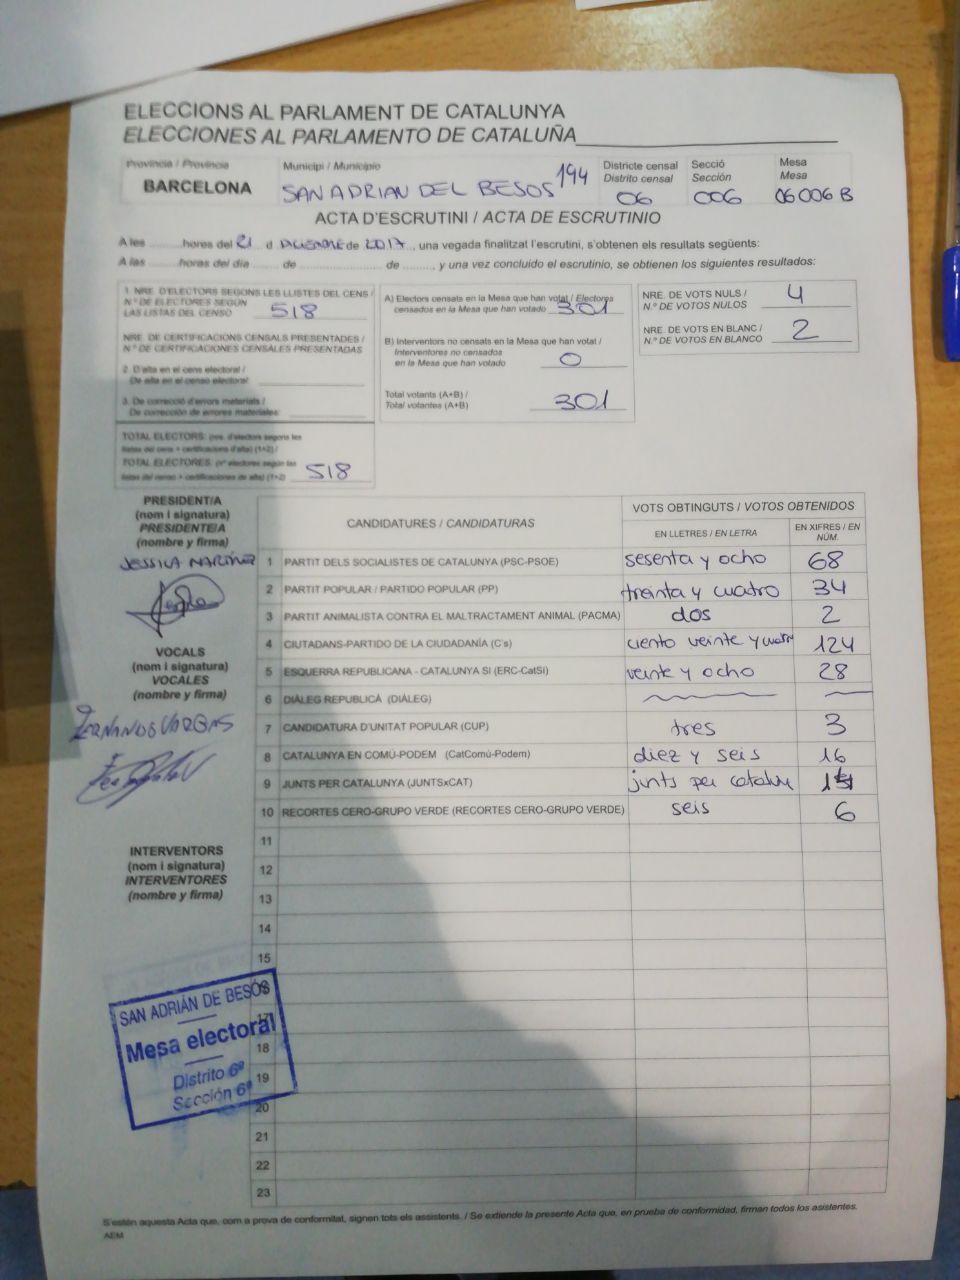 ELECCIONS AL PARLAMENT DE CATALUNYA
ELECCIONES AL PARLAMENTO DE CATALUÑA
Provincia / Provincia
BARCELONA
Municipi / Municipio
SAN ADRIAN DEL BESOS 194
Districte censal
Distrito censal
06
Secció
Sección
006
Mesa
Mesa
06006 B
ACTA D'ESCRUTINI / ACTA DE ESCRUTINIO
A les ........ hores del 21 d DICIEMBRE de 2017, una vegada finalitzat l'escrutini, s'obtenen els resultats següents:
A las ........ horas del día ........ de ........ de ........, y una vez concluido el escrutinio, se obtienen los siguientes resultados:
1 NRE. D'ELECTORS SEGONS LES LLISTES DEL CENS /
N.º DE ELECTORES SEGÚN
LAS LISTAS DEL CENSO 518
NRE. DE CERTIFICACIONS CENSALS PRESENTADES /
N.º DE CERTIFICACIONES CENSALES PRESENTADAS
2. D'alta en el cens electoral /
De alta en el censo electoral
3. De correcció d'errors materials /
De corrección de errores materiales:
TOTAL ELECTORS: (nre. d'electors segons les
llistes del cens + certificacions d'alta) (1+2) /
TOTAL ELECTORES: (nº electores según las
listas del censo + certificaciones de alta) (1+2) 518
A) Electors censats en la Mesa que han votat / Electores
censados en la Mesa que han votado 301
B) Interventors no censats en la Mesa que han votat /
Interventores no censados
en la Mesa que han votado 0
Total votants (A+B) /
Total votantes (A+B) 301
NRE. DE VOTS NULS /
N.º DE VOTOS NULOS 4
NRE. DE VOTS EN BLANC /
N.º DE VOTOS EN BLANCO 2
PRESIDENT/A
(nom i signatura)
PRESIDENTE/A
(nombre y firma)
VOCALS
(nom i signatura)
VOCALES
(nombre y firma)
FERNANDO VARGAS
INTERVENTORS
(nom i signatura)
INTERVENTORES
(nombre y firma)
CANDIDATURES / CANDIDATURAS
VOTS OBTINGUTS / VOTOS OBTENIDOS
EN LLETRES / EN LETRA
EN XIFRES / EN NÚM.
1 PARTIT DELS SOCIALISTES DE CATALUNYA (PSC-PSOE) sesenta y ocho 68
2 PARTIT POPULAR / PARTIDO POPULAR (PP) treinta y cuatro 34
3 PARTIT ANIMALISTA CONTRA EL MALTRACTAMENT ANIMAL (PACMA) dos 2
4 CIUTADANS-PARTIDO DE LA CIUDADANÍA (C's) ciento veinte y cuatro 124
5 ESQUERRA REPUBLICANA - CATALUNYA SI (ERC-CatSí) veinte y ocho 28
6 DIÀLEG REPUBLICÀ (DIÀLEG)
7 CANDIDATURA D'UNITAT POPULAR (CUP) tres 3
8 CATALUNYA EN COMÚ-PODEM (CatComú-Podem) diez y seis 16
9 JUNTS PER CATALUNYA (JUNTSxCAT) junts per
10 RECORTES CERO-GRUPO VERDE (RECORTES CERO-GRUPO VERDE) seis 6
11
12
13
14
15
17
18
19
20
21
22
23
SAN ADRIÁN DE BESÓS
Mesa electoral
Distrito 6º
Sección 6ª
S'estén aquesta Acta que, com a prova de conformitat, signen tots els assistents. / Se extiende la presente Acta que, en prueba de conformidad, firman todos los asistentes.
AEM